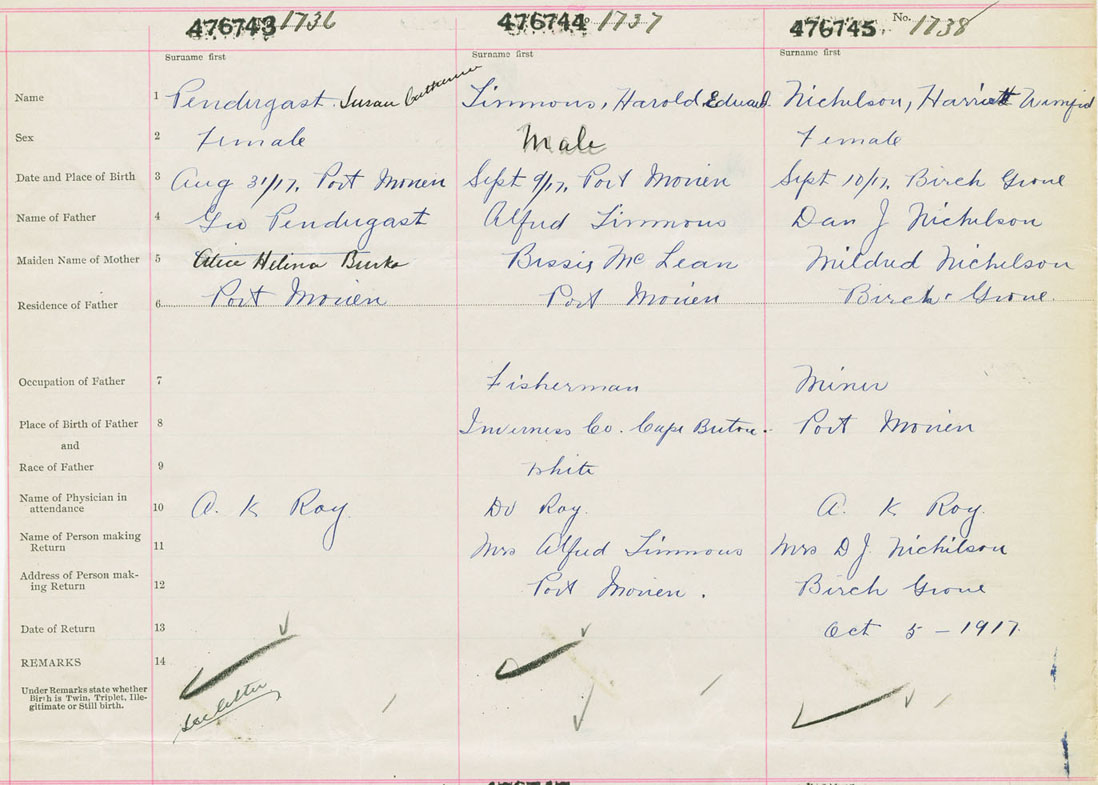 476743 1736 476744 No. 1737 476745 No. 1738
Surname first Surname first Surname first
Name 1 Pendergast Susan Catherine Timmons, Harold Edward Nicholson, Harriett Winifred
Sex 2 Female Male Female
Date and Place of Birth 3 Aug 31/17, Port Morien Sept 9/17, Port Morien Sept 10/17, Birch Grove
Name of Father 4 Geo Pendergast Alfred Timmons Dan J Nicholson
Maiden Name of Mother 5 Alice Helina Burke Bessie Mc Lean Mildred Nicholson
Residence of Father 6 Port Morien Port Morien Birch Grove
Occupation of Father 7 Fisherman Miner
Place of Birth of Father 8 Inverness Co. Cape Breton. Port Morien
and
Race of Father 9 White
Name of Physician in
attendance 10 A. K Roy. Dr Roy. A. K Roy.
Name of Person making
Return 11 Mrs Alfred Timmons Mrs D J. Nicholson
Address of Person mak-
ing Return 12 Port Morien. Birch Grove
Date of Return 13 Oct 5 - 1917.
REMARKS 14
Under Remarks state whether
Birth is Twin, Triplet, Ille-
gitimate or Still birth.
See letter